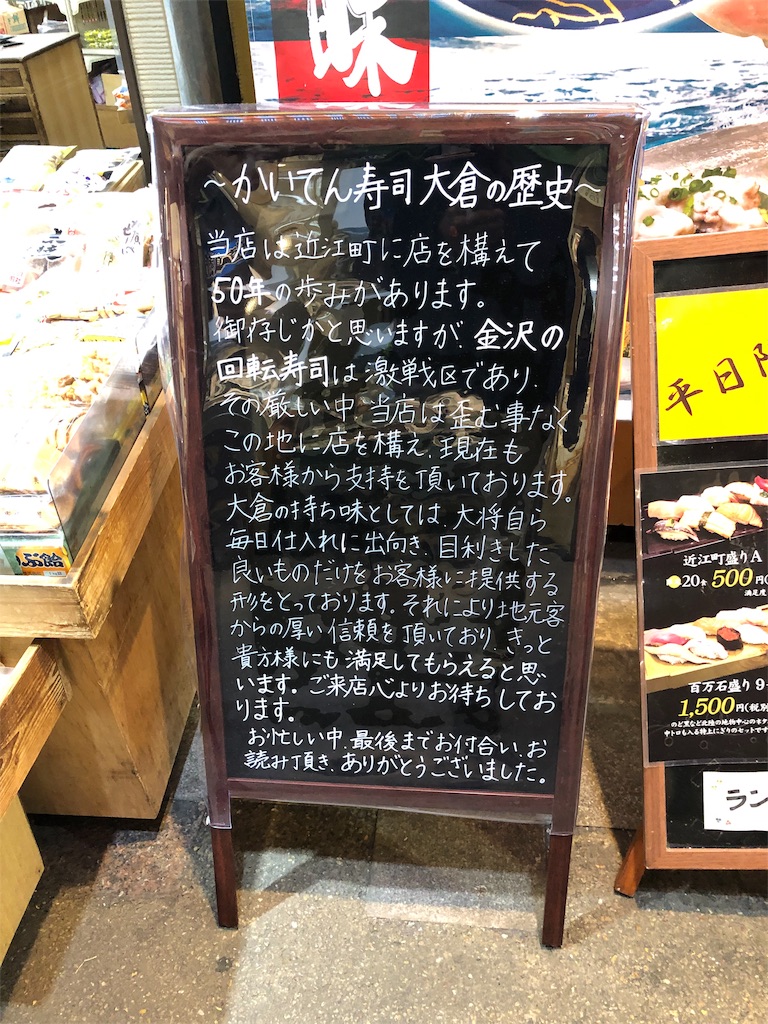 味
～かいてん寿司大倉の歴史～
当店は近江町に店を構えて
50年の歩みがあります。
御存じかと思いますが、金沢の
回転寿司は激戦区であり、
その厳しい中、当店は歪む事なく
この地に店を構え、現在も
お客様から支持を頂いております。
大倉の持ち味としては、大将自ら
毎日仕入れに出向き、目利きした
良いものだけをお客様に提供する
形をとっております。それにより地元客
からの厚い信頼を頂いており、きっと
貴方様にも満足してもらえると思
います。ご来店心よりお待ちしてお
ります。
お忙しい中、最後までお付合い、お
読み頂き、ありがとうございました。
ぶ飴
平日限
近江町盛りA
20食500円
満足度
百万石盛り9
1,500円(税別
のど黒など北陸の地物中心のネタ
中トロも入る特上にぎりのセットです
ラン